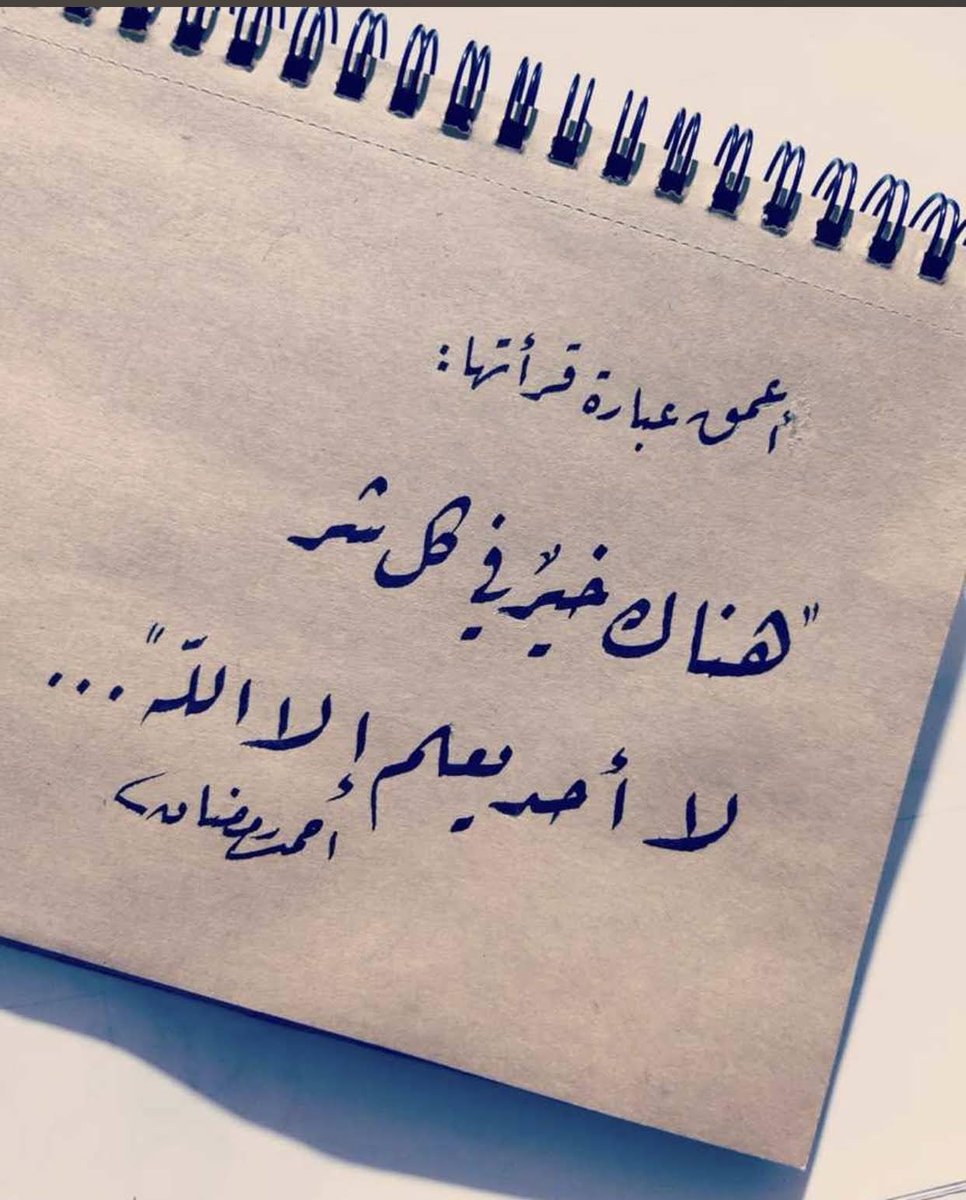 أعمق عبارة قرأتها :
"هناك خيرٌ في كل شر
لا أحد يعلم إلا اللّه" ...
أحمد رمضان